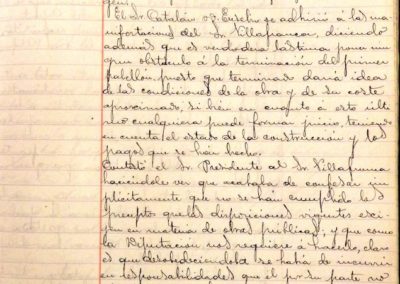 El Sr. Catalán y Eusebio se adhirió á las ma-
nifestaciones del Sr. Villafranca, diciendo
además que es verdadera lástima poner nin
gun obstáculo á la terminación del primer
pabellón, puesto que terminado daría idea
de las condiciones de la obra y de su coste
aproximado, si bien en cuanto á esto últi
mo cualquiera puede formar juicio, teniendo
en cuenta el estado de la construcción y los
pagos que se han hecho.
Contestó el Sr. Presidente al Sr. Villafranca
haciéndole ver que acababa de confesar im
plícitamente que no se han cumplido los
preceptos que las disposiciones vigentes exi-
jen en materia de obras públicas, y que como
la Diputación nos requiere á hacerlo, claro
es que desobedeciéndola se había de incurrir
en responsabilidades que él por su parte no